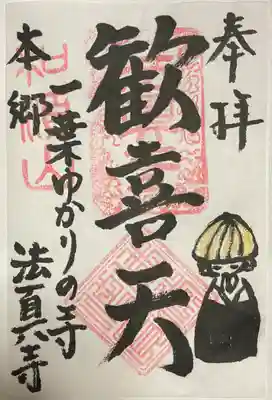 奉拝
歓喜天
一葉ゆかりの寺
本郷
法真寺